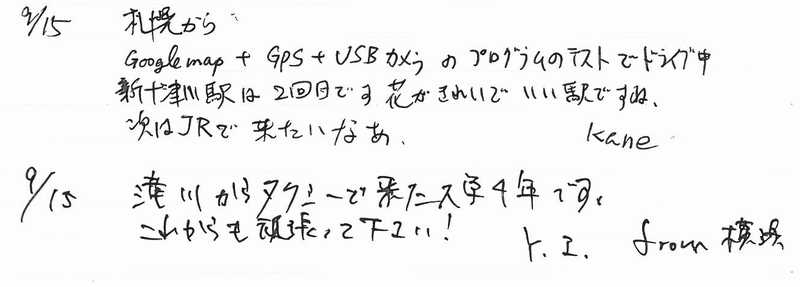 9/15 札幌から
Google map + GPS + USBカメラのプログラムのテストでドライブ中
新十津川駅は2回目です 花がきれいでいい駅ですね。
次はJRで来たいなあ。 Kane
9/15 滝川からタクシーで来た 4年です。
これからも頑張って下さい!
Y. I. from 横浜